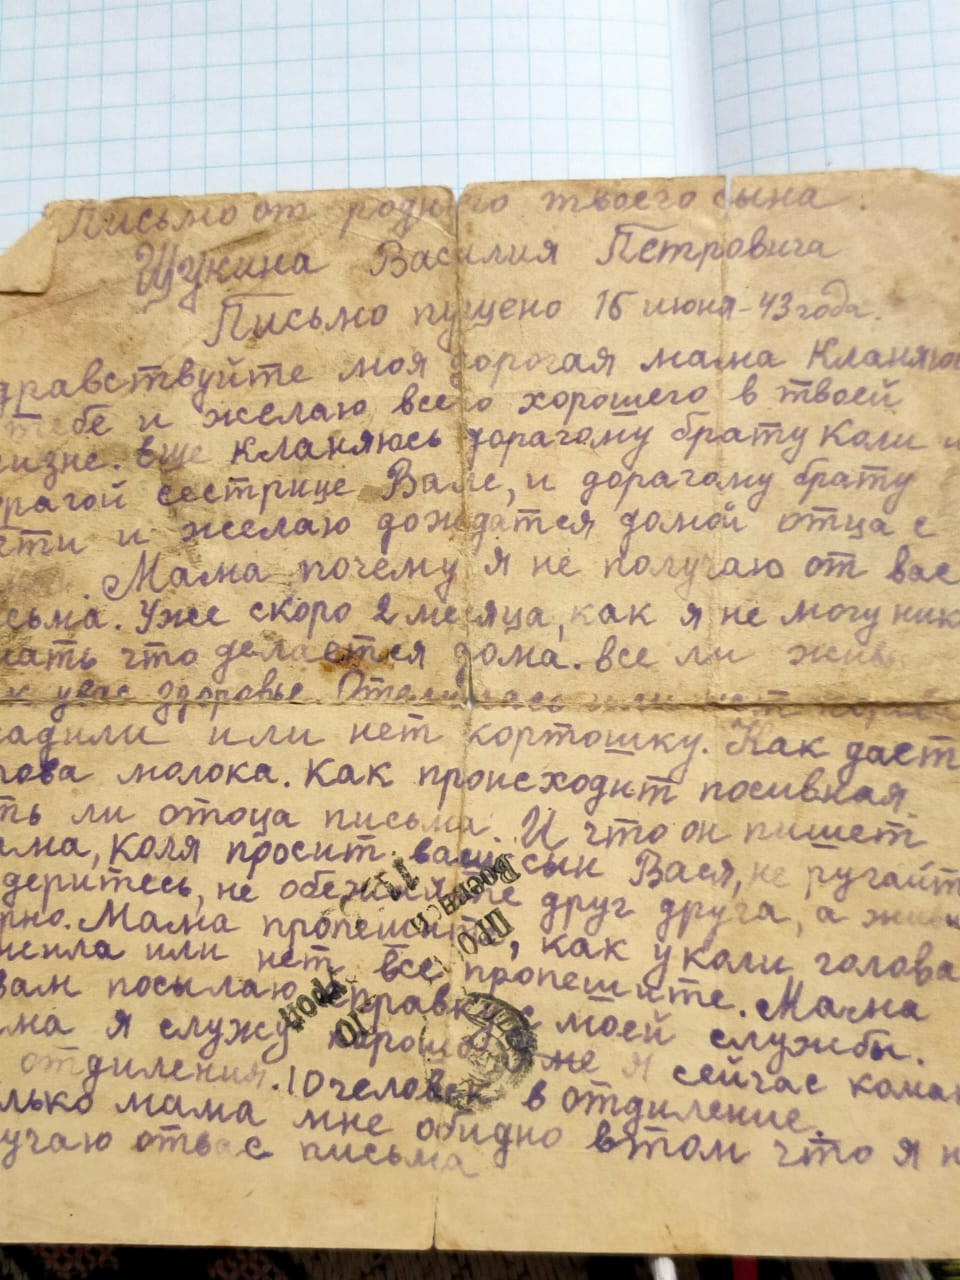 Письмо от родного твоего сына.
Щукина Василия Петровича
Письмо пущено 16 июня-43 года.
дравствуйте моя дорогая мама Кланяюс
тебе и желаю всего хорошего в твоей
изне. Еще кланяюсь дорагому брату Коли и
рагой сестрице Вале, и дорагому брату
ти и желаю дождатся домой отца с
Мама почему я не получаю от вас
сьма. Уже скоро 2 месяца, как я не могу ник
нать что делается дома. все ли жив
здоровье. Отелилась или нет
адили или нет кортошку. Как дает
рова молока. Как происходит посивная
ть ли отоца письма. И что он пишет
ама, Коля просит ваш сын Вася, не ругайт
деритесь, не обежайте друг друга, а жив
рно. Мама пропешите, как у коли голова
или нет все пропешите. Мама
вам посылаю справку с моей службы.
ма я служу хорошо уже я сейчас коман
отдиления. 10 человек в отдиление.
лько мама мне обидно втом что я н
учаю отвас письма